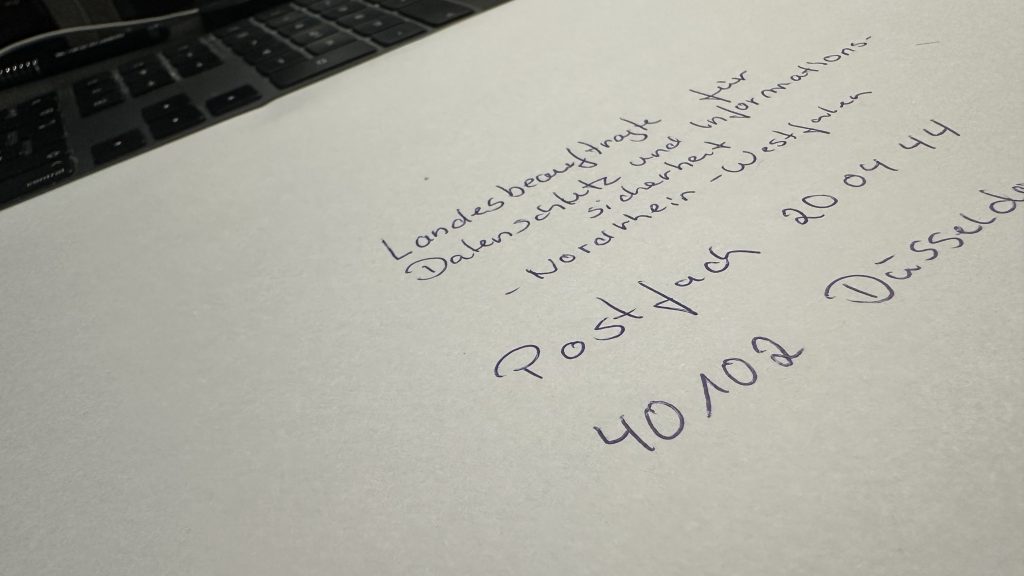 Landesbeauftragte für
Datenschutz und Informations-
sicherheit
- Nordrhein-Westfalen -
Postfach 20 04 44
40102 Düsseldo